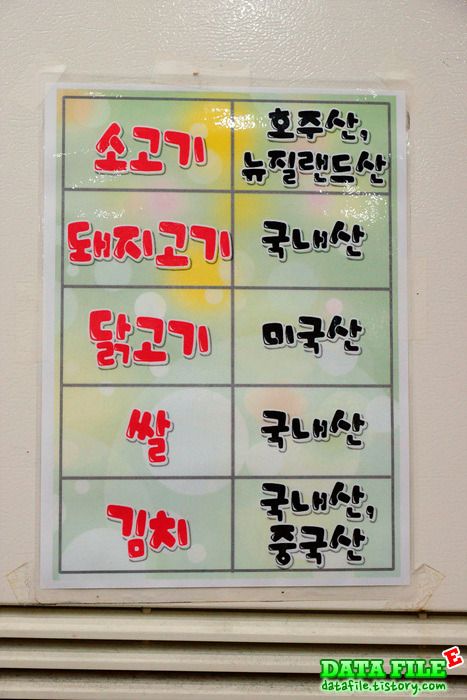 소고기
호주산,
뉴질랜드산
돼지고기
국내산
닭고기
미국산
쌀
국내산
김치
국내산,
중국산
DATA FILE E
datafile.tistory.com